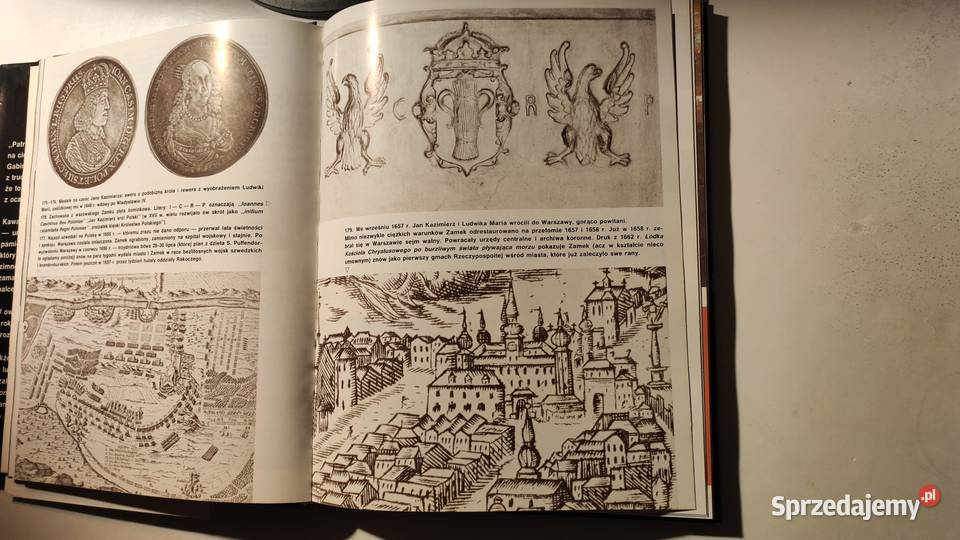 „Patr
na cie
Gabin
z trud
że to
z oca
Kawa
— uni
pamię
który
zimn
zama
palce
175.-176. Medale na cześć Jana Kazimierza: awers z podobizną króla i rewers z wyobrażeniem Ludwiki
Marii, poślubionej mu w 1649 r. wdowy po Władysławie IV.
178. Zachowana z wazowskiego Zamku płyta kominkowa. Litery: I — C — R — P oznaczają „Ioannes
Casimirus Rex Poloniae", „Jan Kazimierz król Polski" (w XVII w. wielu rozwijało ów skrót jako „Initium
calamitatis Regni Poloniae", „początek klęski Królestwa Polskiego").
177. Najazd szwedzki na Polskę w 1655 r. — któremu zrazu nie dano odporu — przerwał lata świetności
i spokoju. Warszawa została zniszczona. Zamek ograbiony, zamieniony na szpital wojskowy i stajnie. Po
wyzwoleniu Warszawy w czerwcu 1656 r. — trzydniowa bitwa 28–30 lipca (której plan z dzieła S. Puffendor-
fa oglądamy poniżej) znów na parę tygodni wydała miasto i Zamek w ręce bezlitosnych wojsk szwedzkich
i brandenburskich. Potem jeszcze w 1657 r. przez tydzień hulały oddziały Rakoczego.
C R P
179. We wrześniu 1657 r. Jan Kazimierz i Ludwika Maria wrócili do Warszawy, gorąco powitani.
Mimo niezwykle ciężkich warunków Zamek odrestaurowano na przełomie 1657 i 1658 r. Już w 1658 r. ze-
brał się w Warszawie sejm walny. Powracały urzędy centralne i archiwa koronne. Druk z 1662 r. Łódka
Kościoła Chrystusowego po burzliwym świata pływająca morzu pokazuje Zamek (acz w kształcie nieco
umownym) znów jako pierwszy gmach Rzeczypospolitej wśród miasta, które już zaleczyło swe rany.
Sprzedajemy.pl